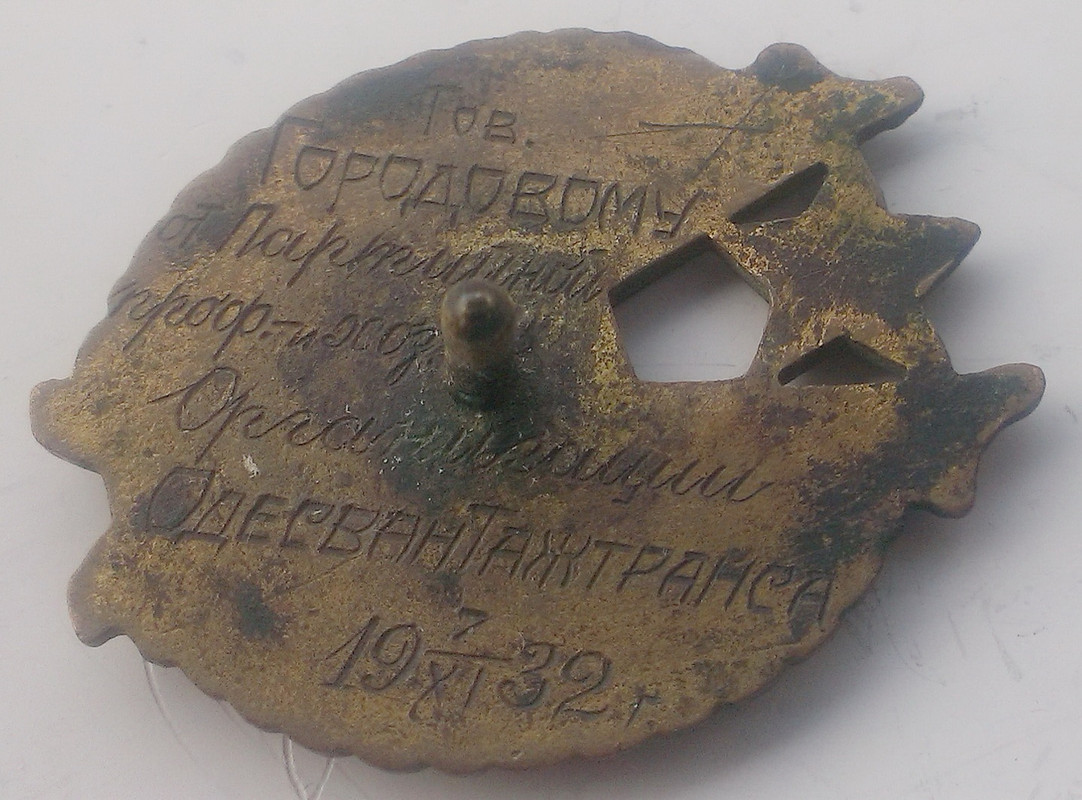 Тов.
ГОРОДОВОМУ
от Партийной
проф.-и хоз.
Организации
ОДЕСВАНТАЖТРАНСА
19 7/XI 32 г